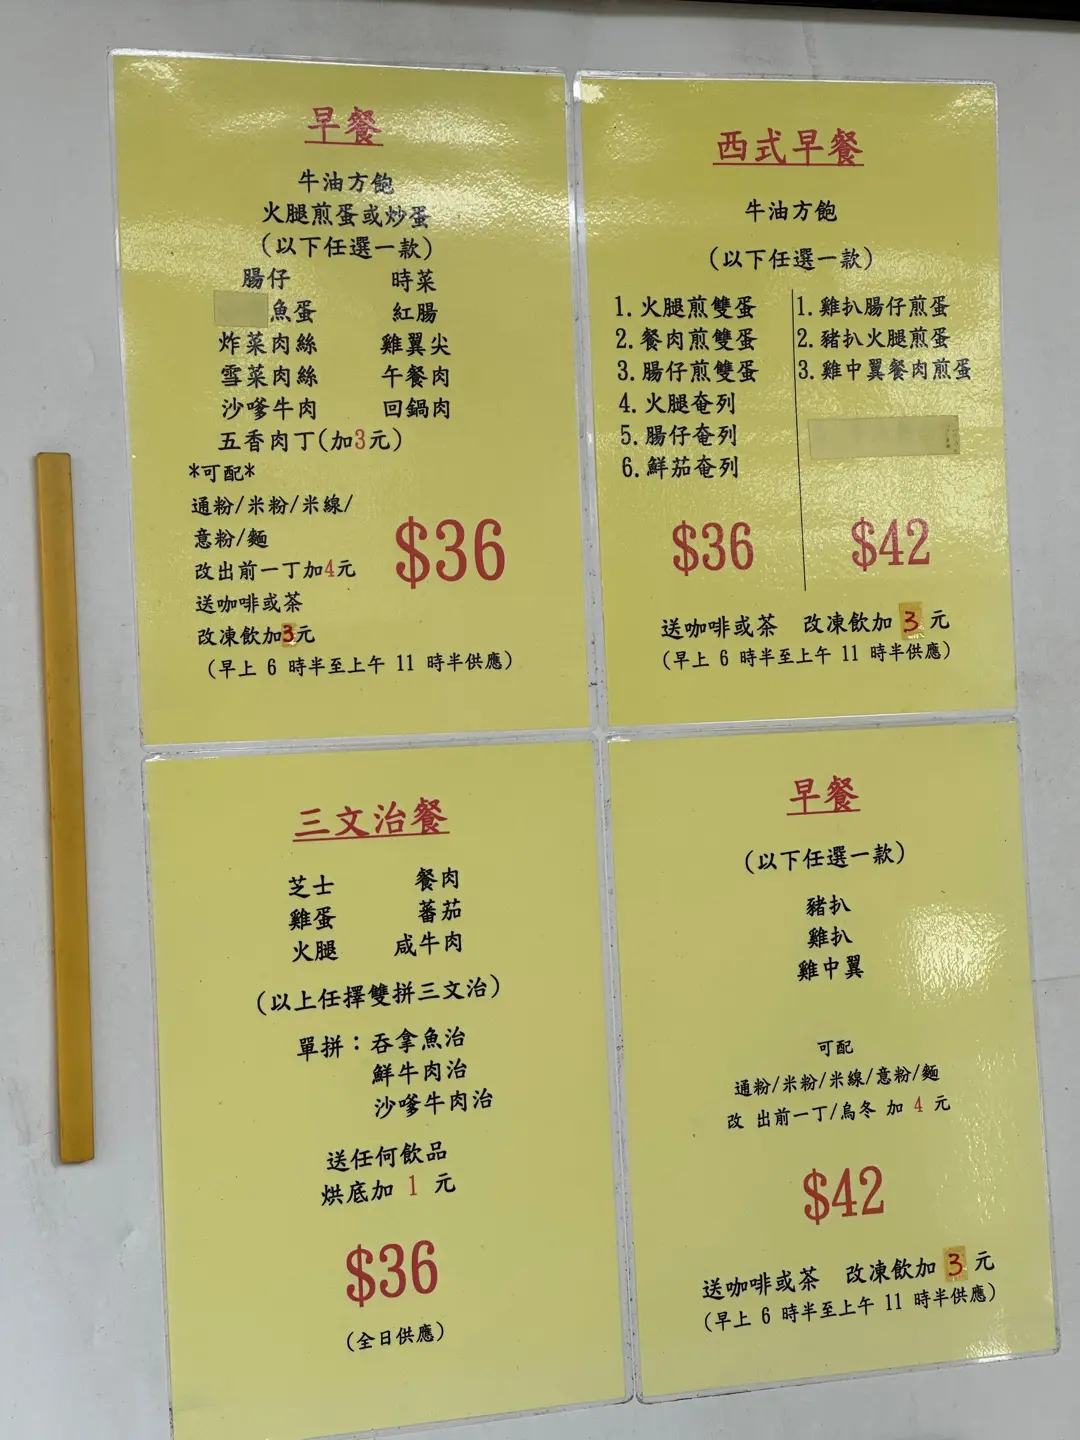 早餐
牛油方飽
火腿煎蛋或炒蛋
(以下任選一款)
腸仔 時菜
魚蛋 紅腸
炸菜肉絲 雞翼尖
雪菜肉絲 午餐肉
沙嗲牛肉 回鍋肉
五香肉丁(加3元)
*可配*
通粉/米粉/米線/
意粉/麵
改出前一丁加4元
送咖啡或茶
改凍飲加3元
$36
(早上 6 時半至上午 11 時半供應)
西式早餐
牛油方飽
(以下任選一款)
1. 火腿煎雙蛋
2. 餐肉煎雙蛋
3. 腸仔煎雙蛋
4. 火腿奄列
5. 腸仔奄列
6. 鮮茄奄列
$36
1. 雞扒腸仔煎蛋
2. 豬扒火腿煎蛋
3. 雞中翼餐肉煎蛋
$42
送咖啡或茶 改凍飲加 3 元
(早上 6 時半至上午 11 時半供應)
三文治餐
芝士 餐肉
雞蛋 蕃茄
火腿 咸牛肉
(以上任擇雙拼三文治)
單拼：吞拿魚治
鮮牛肉治
沙嗲牛肉治
送任何飲品
烘底加 1 元
$36
(全日供應)
早餐
(以下任選一款)
豬扒
雞扒
雞中翼
可配
通粉/米粉/米線/意粉/麵
改 出前一丁/烏冬 加 4 元
$42
送咖啡或茶 改凍飲加 3 元
(早上 6 時半至上午 11 時半供應)